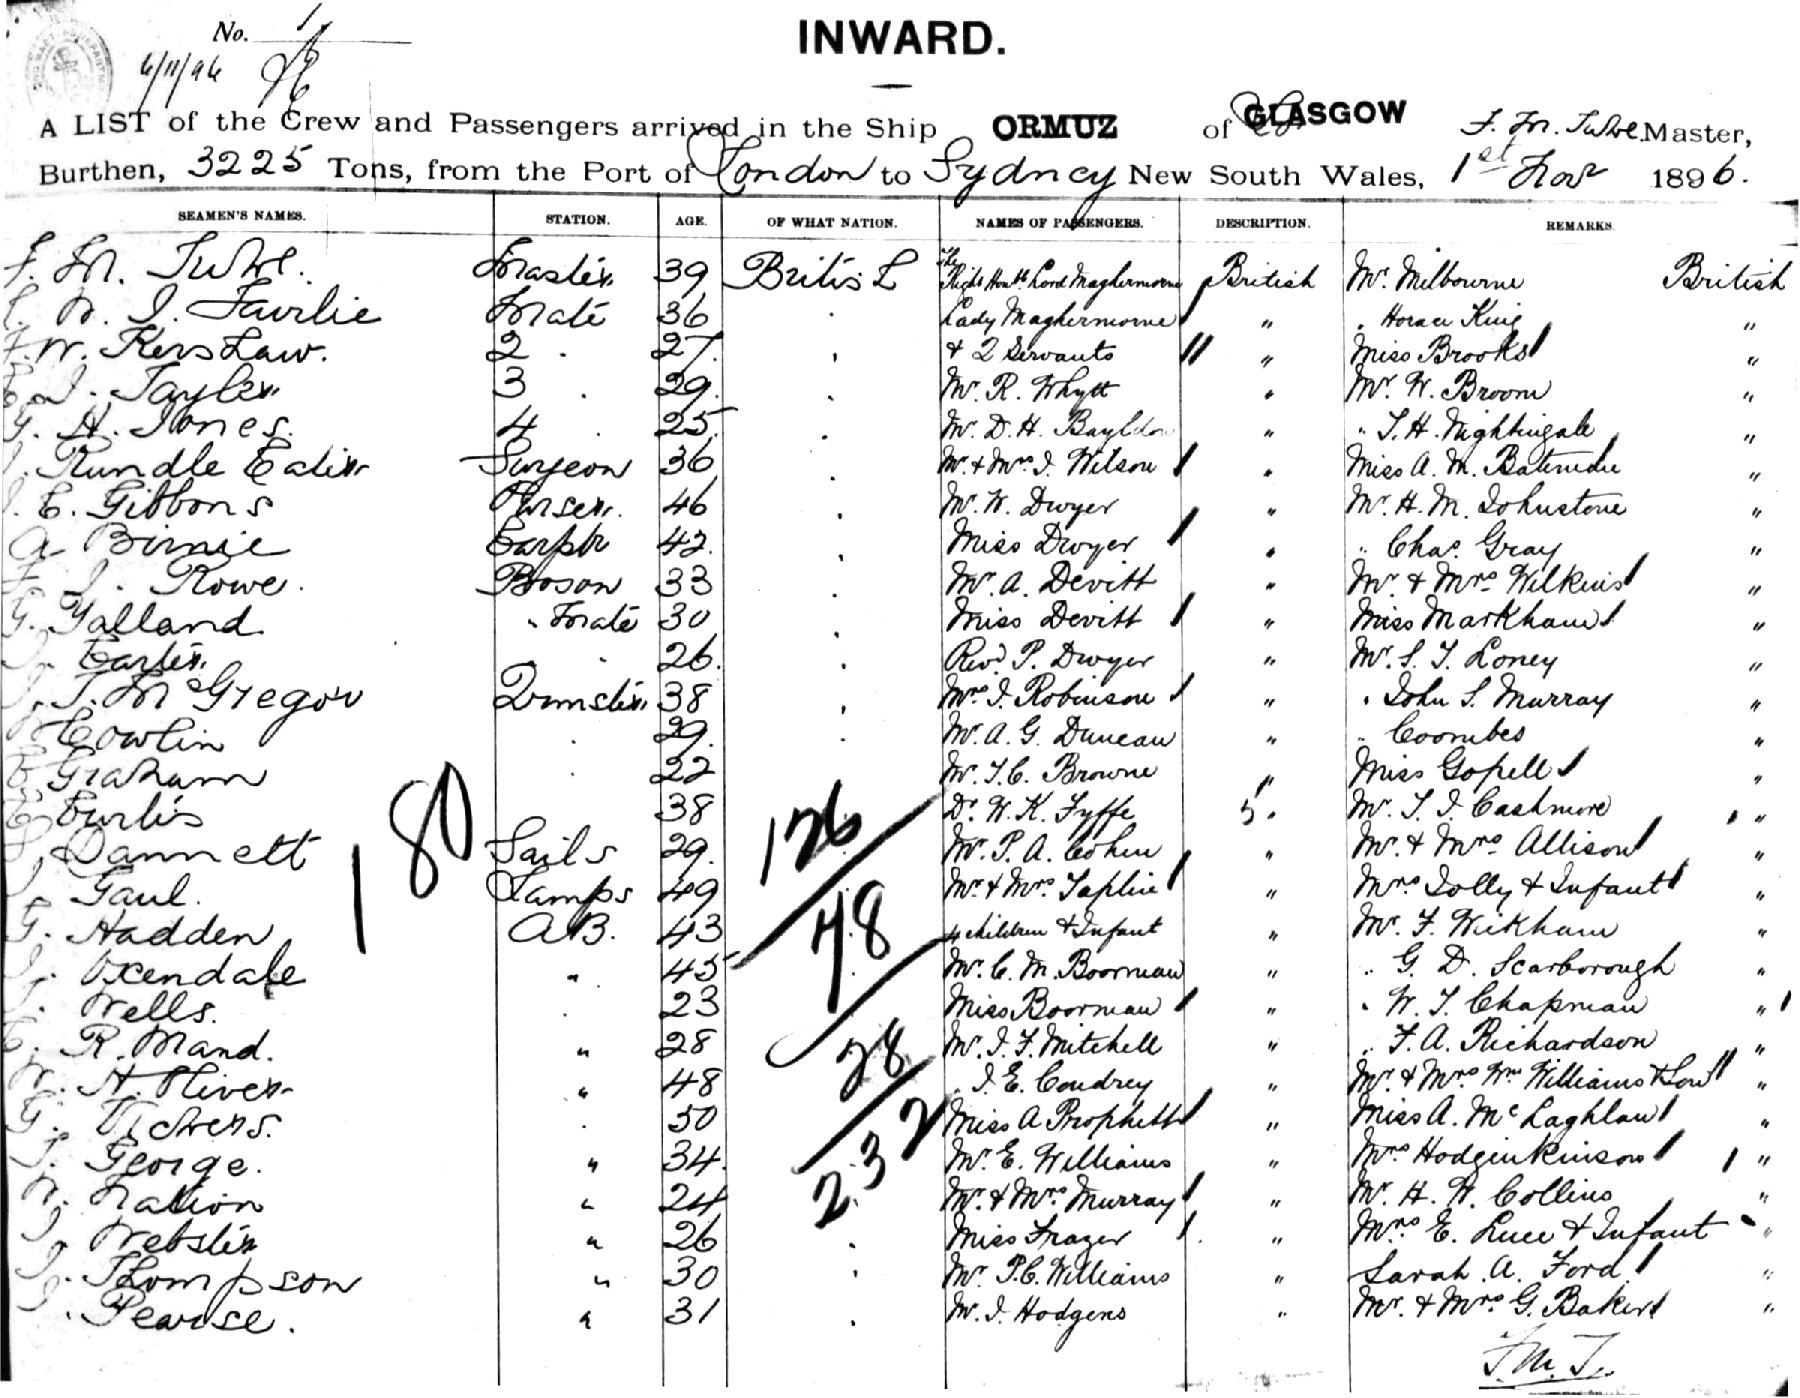 No. 1
6/11/96
INWARD.
A LIST of the Crew and Passengers arrived in the Ship ORMUZ of GLASGOW F. M. Tuke Master,
Burthen, 3225 Tons, from the Port of London to Sydney New South Wales, 1st Nov 1896.
SEAMEN'S NAMES. STATION. AGE. OF WHAT NATION. NAMES OF PASSENGERS. DESCRIPTION. REMARKS.
F. M. Tuke. Master 39 British The Right Honble Lord Maghermorne British Mr. Milbourne British
Fairlie Mate 36 Lady Maghermorne " " Horace King "
W. Kershaw. 2 27. & 2 Servants " Miss Brooks "
J. Tayler 3 29. Mr. R. Whytt " Mr. W. Broom "
G. H. Jones. 4 25 Mr. D. H. Bayldon " " T. H. Nightingale "
Rundle Surgeon 36 Mr. & Mrs. J. Wilson " Miss A. M. "
E. Gibbons Purser. 46 Mr. W. Dwyer " Mr. H. M. Johnstone "
A Birnie Carptr 42. Miss Dwyer " " Chas. Gray "
J. Rowe. Boson 33 Mr. A. Devitt " Mr. & Mrs. Wilkins "
G. Yalland " Mate 30 Miss Devitt " Miss Markham "
Carter. 26. Revd. P. Dwyer " Mr. S. T. Loney "
J. McGregor 38 Mrs. J. Robinson " " John S. Murray "
Cowlin 29. Mr. A. G. Duncan " " Coombes "
Graham 22 Mr. T. C. Browne " Miss "
Curtis 38 Dr. W. K. Fyffe " Mr. T. J. Cashmore "
Dannett Sails 29. Mr. P. A. Cohen " Mr. & Mrs. Allison "
Gaul. Lamps 49 Mr. & Mrs. Taplin " Mrs. Jolly & Infant "
G. Hadden A.B. 43 4 children & Infant " Mr. F. Wickham "
Oxendale " 45 Mr. C. M. Boorman " " G. D. Scarborough "
Wells. 23 Miss Boorman " " W. T. Chapman "
R. Mand. " 28 Mr. J. F. Mitchell " " F. A. Richardson "
W. H. Oliver " 48 " J. E. Coudrey " Mr. & Mrs. Wm. Williams & Son "
G. Vickers. 50 Miss A Prophett " Miss A. McLaghlan "
George. " 34 Mr. E. Williams " Mrs. Hodginkinson "
Nation " 24 Mr. & Mrs. Murray " Mr. H. W. Collins "
Webster " 26 Miss Frazer " Mrs. E. Luce & Infant "
Thompson " 30 Mr. P. C. Williams " Sarah A. Ford "
Pearse. " 31 Mr. J. Hodgens " Mr. & Mrs. G. Baker "
180
126
78
28
232
F. M. T.